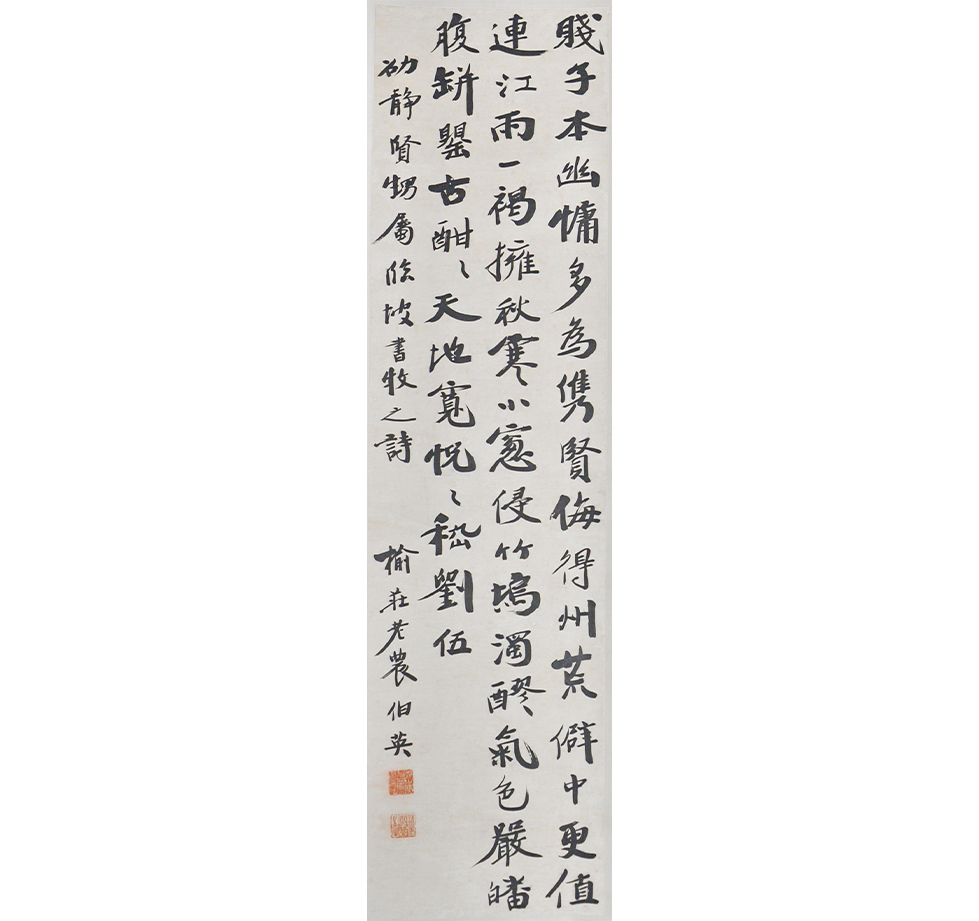 賤子本幽慵多為儁賢侮得州荒僻中更值
連江雨一褐擁秋寒小窓侵竹塢濁醪氣色嚴皤
腹缾罌古酣〻天地寬怳〻嵇劉伍
劭靜賢甥屬臨坡書牧之詩 榆莊老農伯英